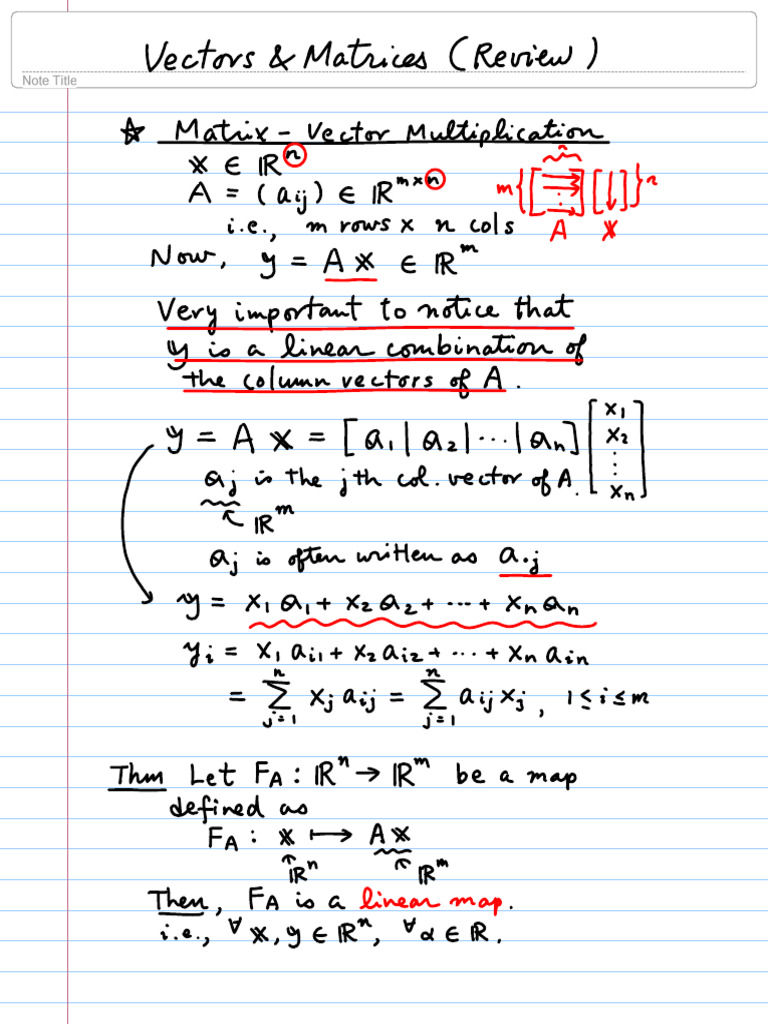 Vectors & Matrices (Review)
Note Title
☆ Matrix-Vector Multiplication
𝕩 ∈ ℝⁿ
A = (aij) ∈ ℝ^{m×n}
i.e., m rows x n cols
m{[ → → ⋮ → ][ ↓ ]}n
n
A 𝕩
Now, 𝕪 = A𝕩 ∈ ℝ^m
Very important to notice that
𝕪 is a linear combination of
the column vectors of A.
𝕪 = A𝕩 = [𝕒₁|𝕒₂|⋯|𝕒n] [x₁ x₂ ⋮ xn]
𝕒j is the jth col. vector of A.
ℝ^m
𝕒j is often written as 𝕒·j
𝕪 = x₁𝕒₁ + x₂𝕒₂ + ⋯ + xn𝕒n
yi = x₁ai1 + x₂ai2 + ⋯ + xn ain
= Σ_{j=1}^{n} xj aij = Σ_{j=1}^{n} aij xj, 1 ≤ i ≤ m
Thm Let FA : ℝⁿ → ℝ^m be a map
defined as
FA : 𝕩 ↦ A𝕩
ℝⁿ ℝ^m
Then, FA is a linear map.
i.e., ∀𝕩, 𝕪 ∈ ℝⁿ, ∀α ∈ ℝ.